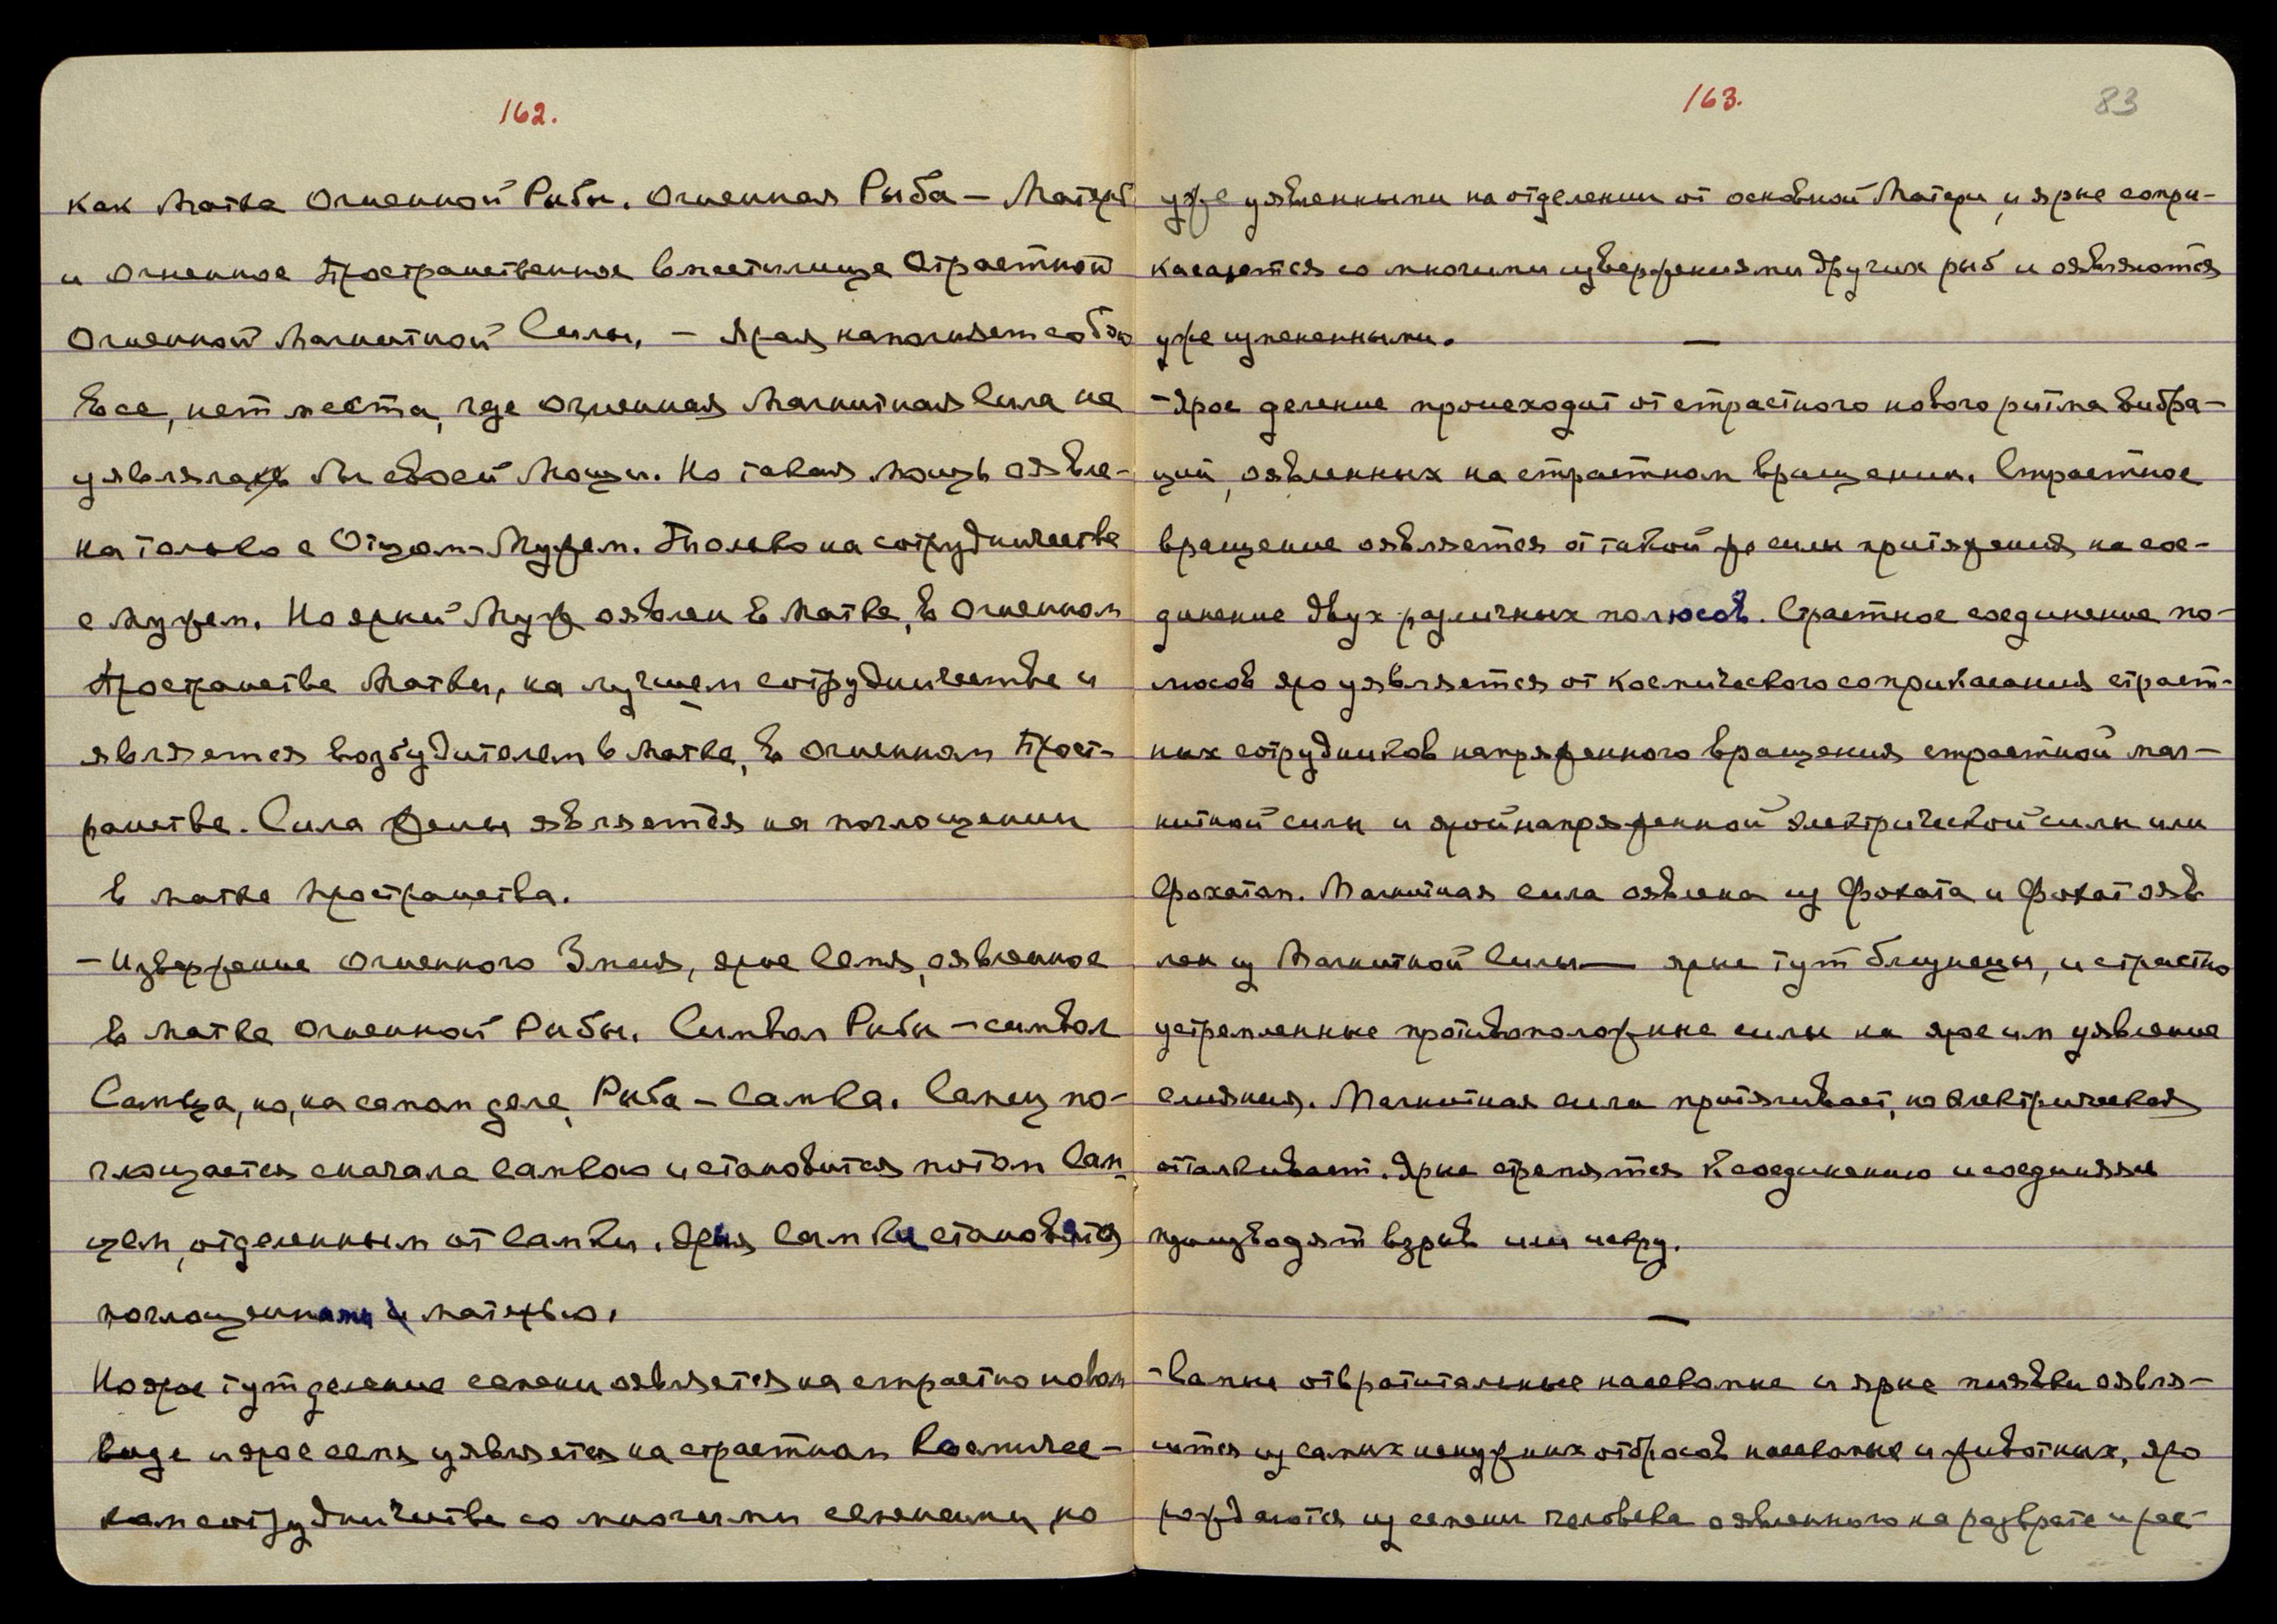 162.
как Матка Огненной Рыбы. Огненная Рыба — Матерь
и Огненное Пространственное вместилище Страстной
Огненной Магнитной Силы, — Ярая наполняет собою
Все, нет места, где огненная Магнитная Сила не
уявляла бы своей Мощи. Но такая мощь оявле-
на только с Отцом-Мужем. Только на сотрудничестве
с Мужем. Но яркий Муж оявлен в Матке, в Огненном
Пространстве Матки, на лучшем сотрудничестве и
является возбудителем в Матке, в Огненном Прост-
ранстве. Сила Жены является на поглощении
в матке пространства.
— Извержение Огненного Змея, ярое Семя, оявленное
в Матке Огненной Рыбы. Символ Рыбы — символ
Самца, но, на самом деле, Рыба — Самка. Самец по-
глощается сначала самкою и становится потом Сам-
цем, отделенным от Самки. Ярыя Самки становятся
поглощенными матерью.
Но ярое тут деление семени оявляется на страстно новом
виде и ярое семя уявляется на страстном Космичес-
ком сотрудничестве со многими семенами, но
163.
83
уже уявленными на отделении от основной Матери, и яркие сопри-
касаются со многими извержениями других рыб и оявляются
уже измененными.
—
— Ярое деление происходит от страстного нового ритма вибра-
ций, оявленных на страстном вращении. Страстное
вращение оявляется от такой же силы притяжения на сое-
динение двух различных полюсов. Страстное соединение по-
люсов яро уявляется от Космического соприкасания страст-
ных сотрудников напряженного вращения страстной маг-
нитной силы и ярой напряженной электрической силы или
Фохатом. Магнитная сила оявлена из Фохата и Фохат ояв
лен из Магнитной Силы — яркие тут близнецы, и страстно
устремленные противоположные силы на ярое им уявление
слияния. Магнитная сила притягивает, но электрическая
отталкивает. Яркие стремятся к соединению и соединяясь
производят взрыв или искру.
—
— Самые отвратительные насекомые и яркие пиявки оявля-
ются из самых ненужных отбросов насекомые и животных, яро
рождаются из семени человека оявленного на разврате и рас-